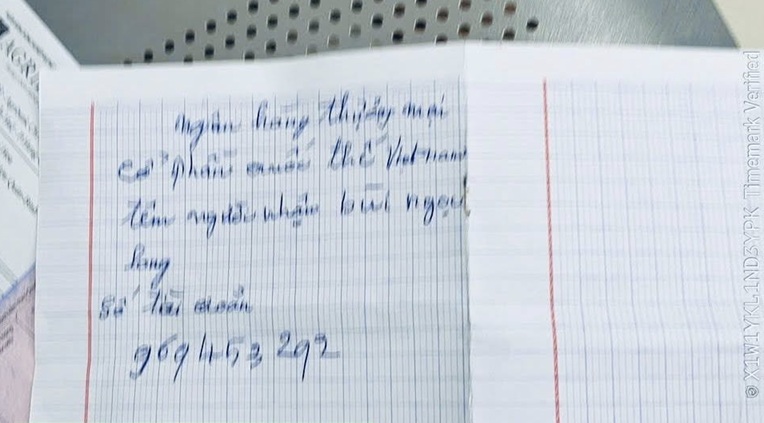 AGRI
ngân hàng thương mại
cổ phần quốc thế Việt nam
tên người nhận bùi ngọc
lang
số tài quản
969453292
© X1W1YKL1ND3YPK Timemark Verified